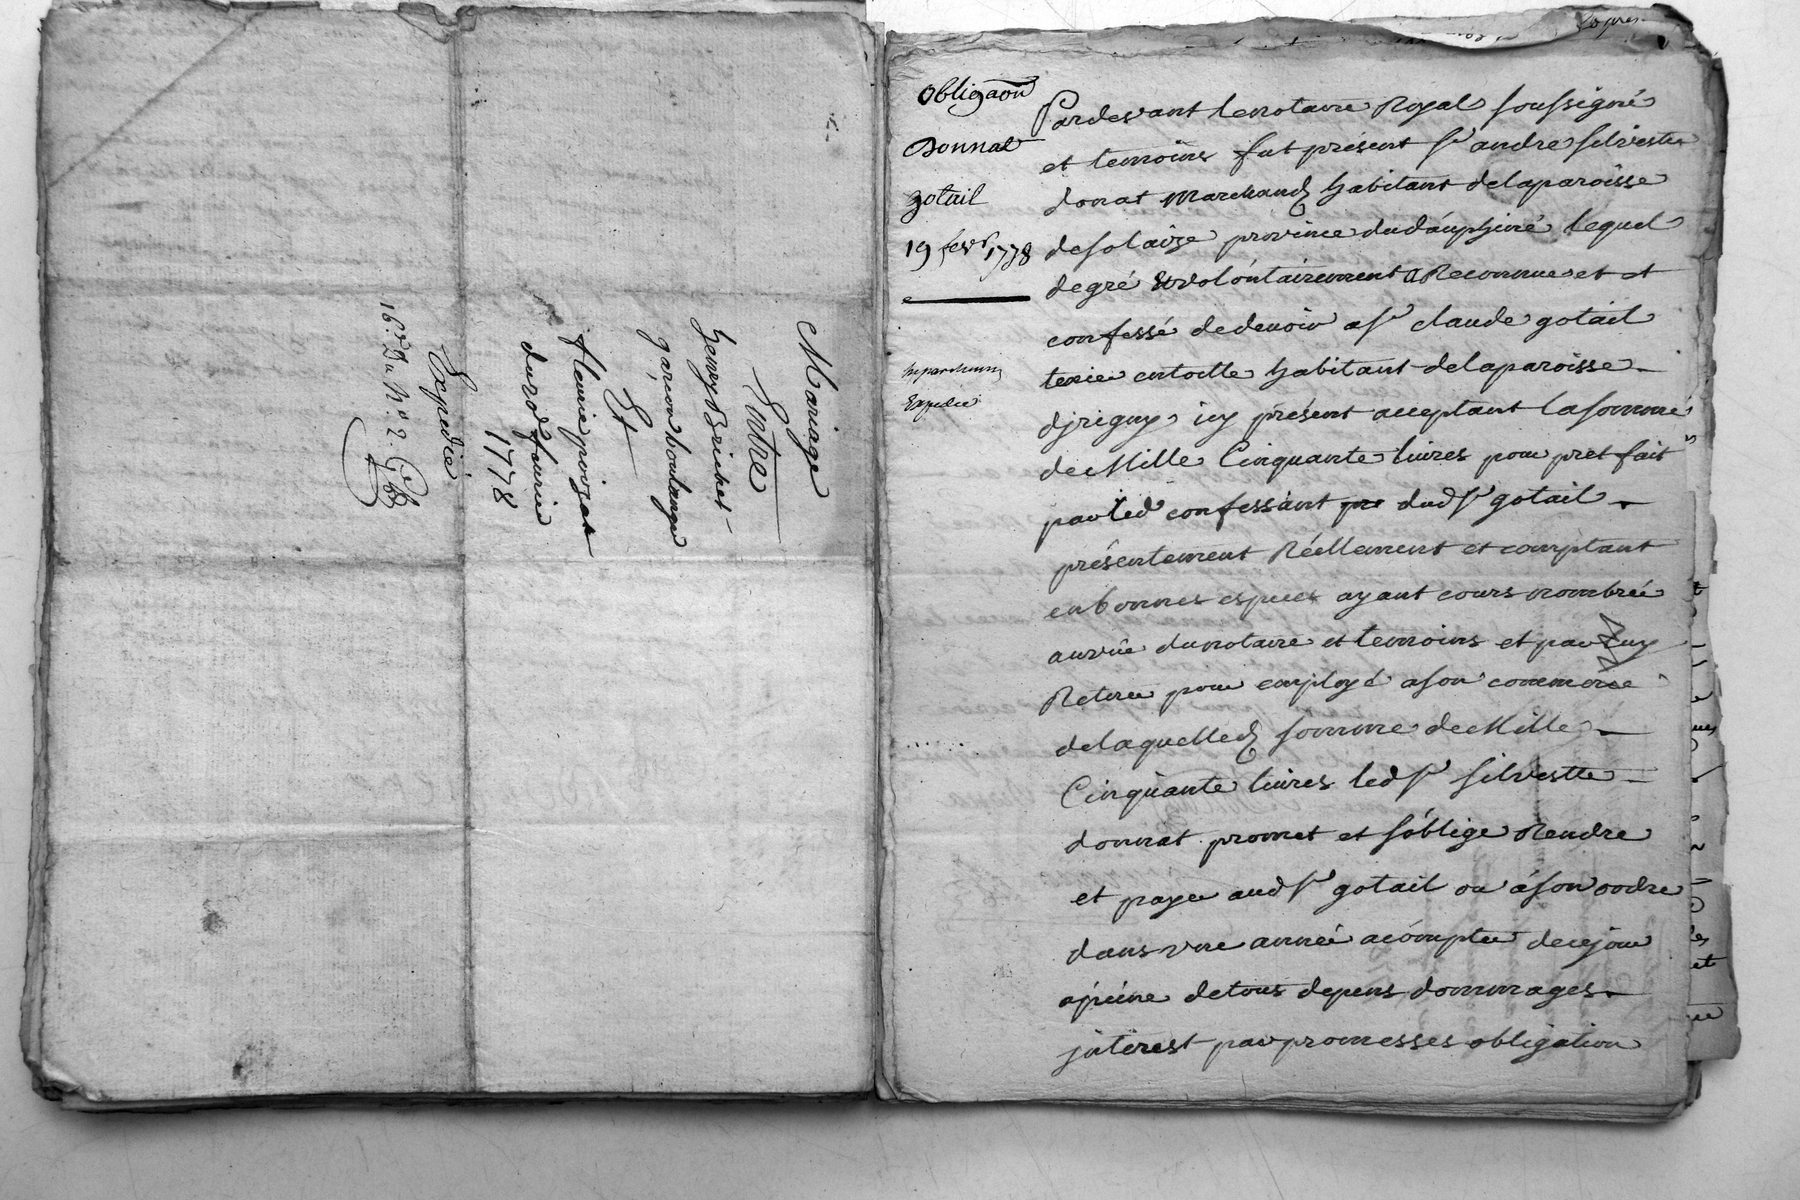 Mariage
Entre
henry Brichet
garçon boulanger
Et
fleurie poizat
du 20 fevrier
1778
Expedié
Du No. 2
obligaôn
Donnat
gotail
19 fevr 1778
Expedié
Pardevant le notaire Royal soussigné
et temoins fut présent Sr andre silvestre
donat marchand habitant de la paroisse
de solaize province du dauphiné lequel
de gré & volontairement a Reconnu et et
confessé de devoir a Sr claude gotail
texier en toille habitant de la paroisse
djrigny icy présent acceptant la somme
de Mille Cinquante livres pour pret fait
par led confessant dud Sr gotail
présentement Réellement et comptant
en bonnes especes ayant cours nombrée
au vûe du notaire et temoins et par luy
Retiré pour employé a son commerce
de laquelled somme de Mille
Cinquante livres led Sr silvestre
donnat promet et s'oblige Rendre
et payer aud Sr gotail ou á son ordre
dans une année a compter de ce jour
a peine de tous depens dommages
jnterest par promesses obligation